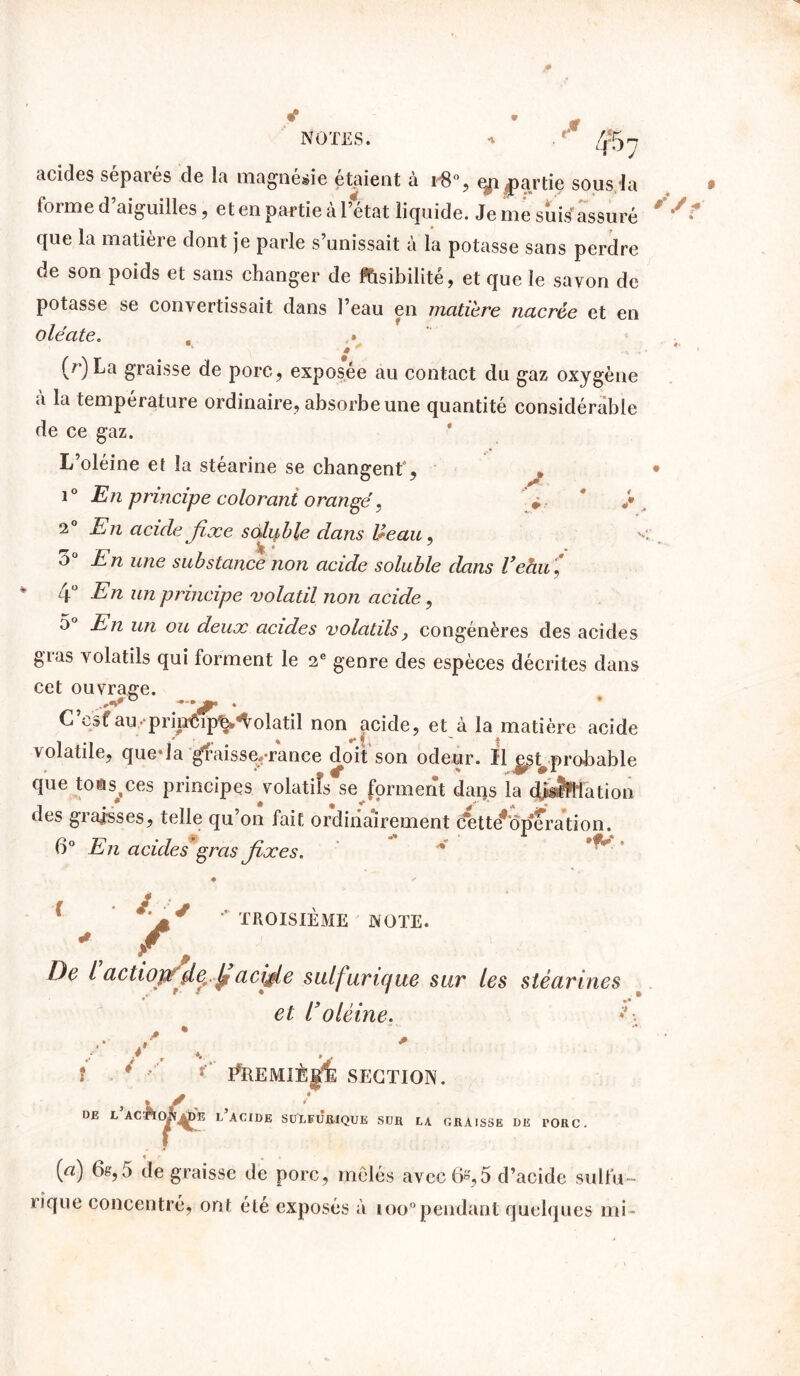 NOTES. 457
acides séparés de la magnésie étaient à 18°, en partie sous la
forme d'aiguilles, et en partie à l'état liquide. Je me suis assuré
que la matière dont je parle s'unissait à la potasse sans perdre
de son poids et sans changer de fusibilité, et que le savon de
potasse se convertissait dans l'eau en matière nacrée et en
oléate.
(r) La graisse de porc, exposée au contact du gaz oxygène
à la température ordinaire, absorbe une quantité considérable
de ce gaz.
L'oléine et la stéarine se changent,
1° En principe colorant orangé,
2° En acide fixe soluble dans l'eau,
3° En une substance non acide soluble dans l'eau,
4° En un principe volatil non acide,
5° En un ou deux acides volatils, congénères des acides
gras volatils qui forment le 2e genre des espèces décrites dans
cet ouvrage.
C'est au principe volatil non acide, et à la matière acide
volatile, que la graisse rance doit son odeur. Il est probable
que tous ces principes volatils se forment dans la distillation
des graisses, telle qu'on fait ordinairement cette opération.
6° En acides gras fixes.
TROISIÈME NOTE.
De l'action de l'acide sulfurique sur les stéarines
et l'oléine.
PREMIÈRE SECTION.
DE L'ACTION DE L'ACIDE SULFURIQUE SUR LA GRAISSE DE PORC.
(a) 6g,5 de graisse de porc, mêlés avec 6g,5 d'acide sulfu-
rique concentré, ont été exposés à 100° pendant quelques mi-